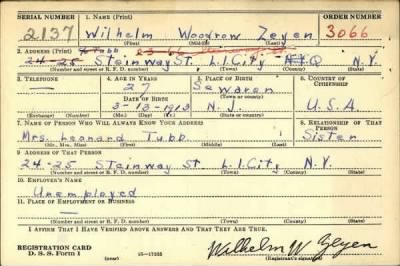 SERIAL NUMBER 1. NAME (Print) ORDER NUMBER
2137 Wilhelm Woodrow Zeyen 3066
(First) (Middle) (Last)
2. ADDRESS (Print)
24-25 Steinway St. L.I.City N.Y.
(Number and street or R. F. D. number) (Town) (County) (State)
3. TELEPHONE 4. AGE IN YEARS 5. PLACE OF BIRTH 6. COUNTRY OF CITIZENSHIP
— 27 Sewaren
DATE OF BIRTH (Town or county)
3-13-1913 N.J. U.S.A
(Exchange) (Number) (Mo.) (Day) (Yr.) (State or country)
7. NAME OF PERSON WHO WILL ALWAYS KNOW YOUR ADDRESS 8. RELATIONSHIP OF THAT PERSON
Mrs. Leonard Tubb Sister
(Mr., Mrs., Miss) (First) (Middle) (Last)
9. ADDRESS OF THAT PERSON
24-25 Steinway St. L.I.City N.Y.
(Number and street or R. F. D. number) (Town) (County) (State)
10. EMPLOYER'S NAME
Unemployed
11. PLACE OF EMPLOYMENT OR BUSINESS
—
(Number and street or R. F. D. number) (Town) (County) (State)
I AFFIRM THAT I HAVE VERIFIED ABOVE ANSWERS AND THAT THEY ARE TRUE.
REGISTRATION CARD
D. S. S. Form 1 (over) 16-17105 Wilhelm W Zeyen
(Registrant's signature)